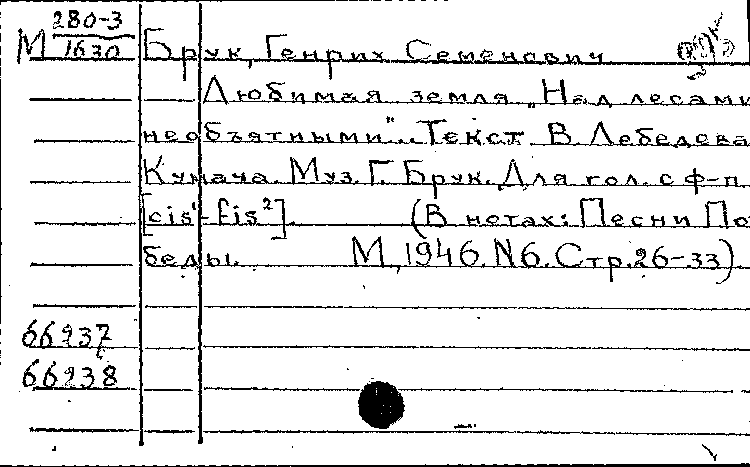 280-3
М 1630 Брук, Генрих Семенович
Любимая земля „Над лесами
необъятными"... Текст В. Лебедева
Кумача. Муз. Г. Брук. Для гол. с ф-п.
[cis¹-fis²]. (В нотах: Песни По
беды. М., 1946. N6. Стр. 26-33).
66237
66238